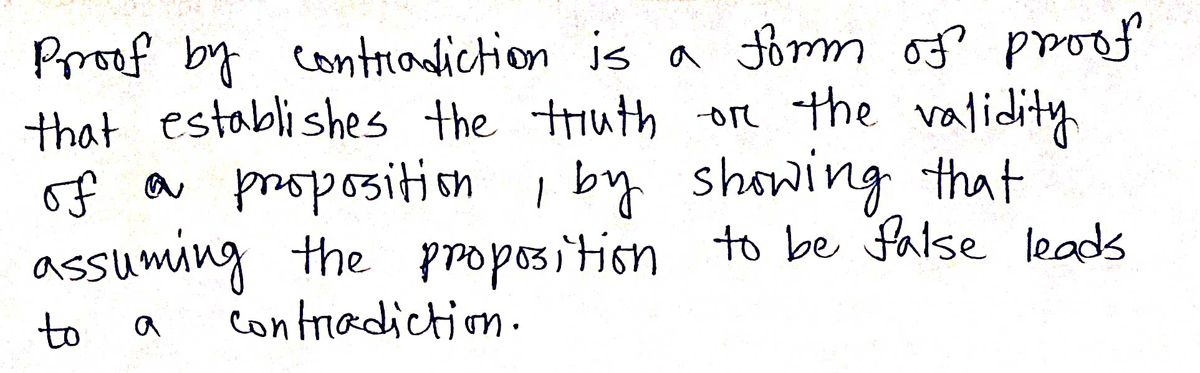 Proof by contradiction is a form of proof
that establishes the truth or the validity
of a proposition , by showing that
assuming the proposition to be false leads
to a contradiction.